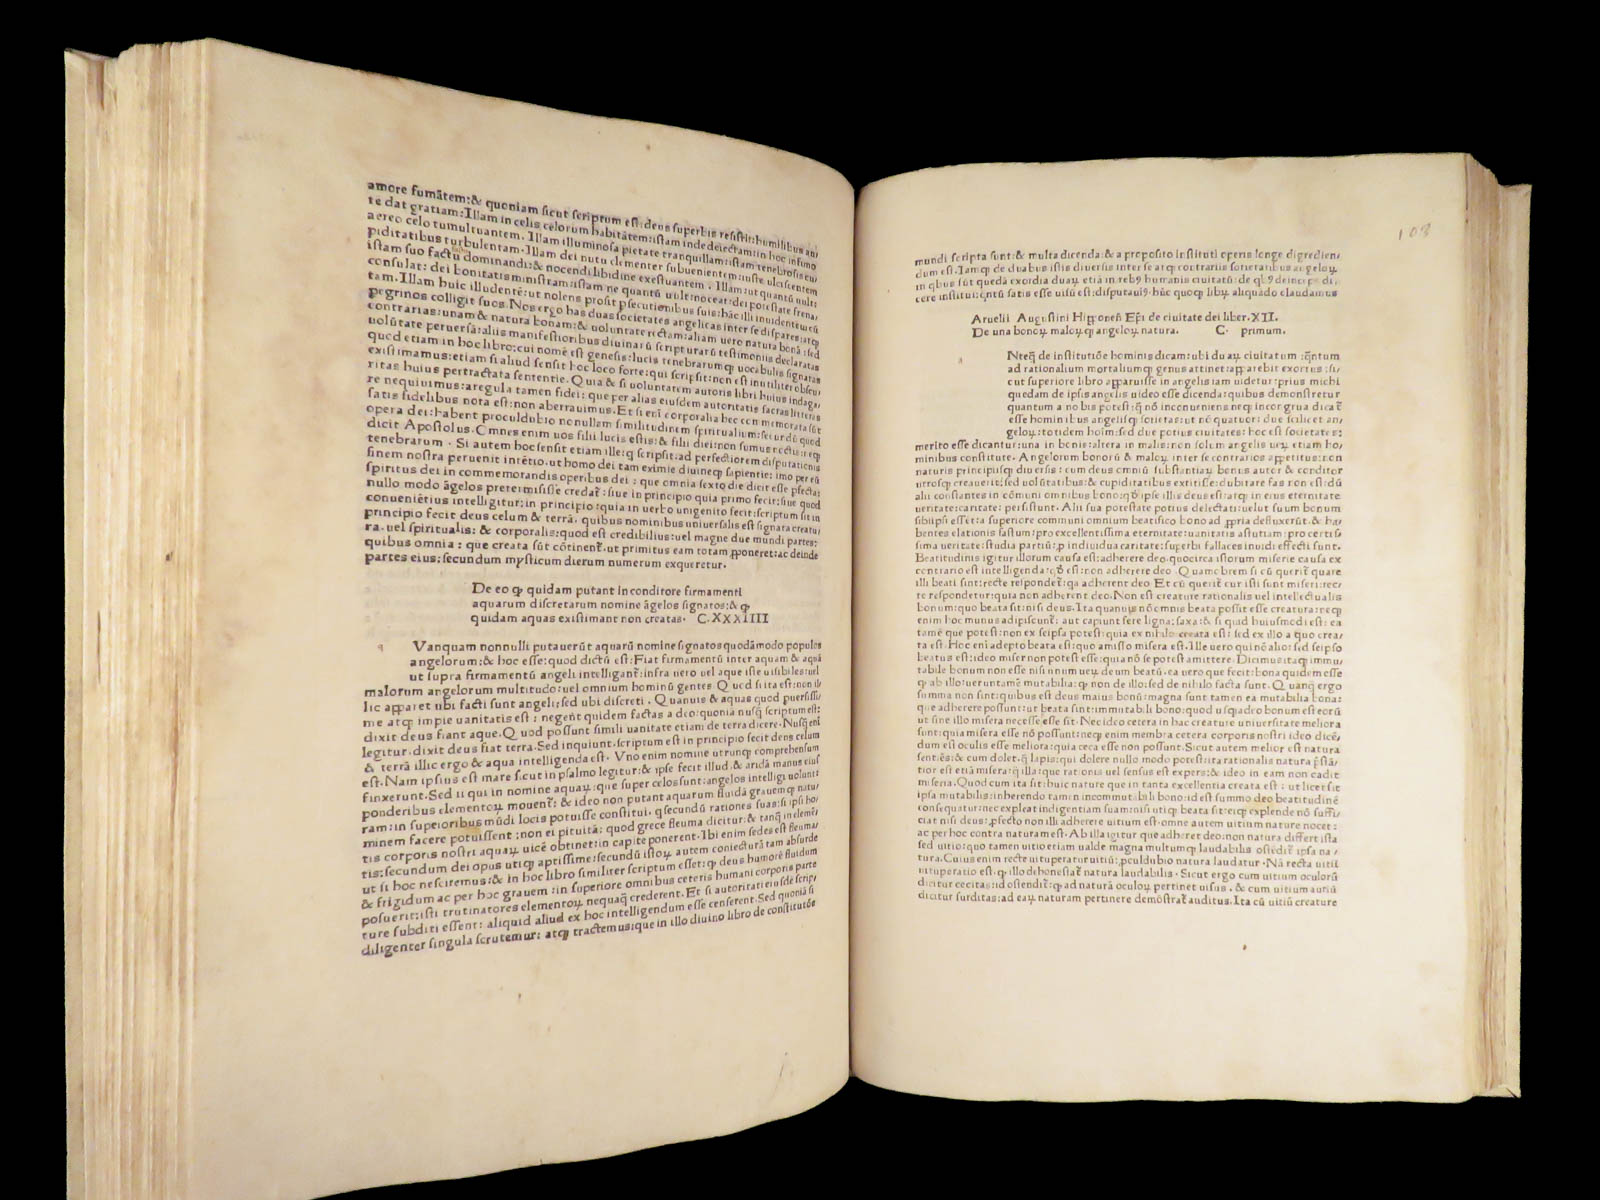 amore fumãtem:& quoniam sicut scriptum est:deus superbis resistit:humilibus aũ
te dat gratiam:Illam in celis celorum habitãtem:istam inde deiectam:in hoc infimo
aereo celo tumultuantem. Illam illuminosa pietate tranquillam:istam tenebrosis cu/
piditatibus turbulentam. Illam dei nutu clementer subuenientem:iuste ulciscentem
istam suo factu dominandi:& nocendi libidine exestuantem. Illam:ut quantũ uult:
consulat: dei bonitatis ministram:istam ne quantũ uult:noceat:dei potestate frena/
tam. Illam huic illudentẽ:ut nolens prosit psecutionibus suis:hãc illi inuidentem:cũ
pegrinos colligit suos. Nos ergo has duas societates angelicas inter se dispares:atq;
contrarias:unam & natura bonam:& uoluntate rectam:aliam uero natura bonã:sed
uolũtate peruersã:aliis manifestioribus diuinarũ scripturarũ testimoniis declaratas
quod etiam in hoc libro:cui nomẽ est genesis:lucis tenebrarumq; uocabulis signatas
existimamus:etiam si aliud sensit hoc loco forte:qui scripsit:non est inutiliter obscu/
ritas huius pertractata sententie. Quia & si uoluntatem autoris libri huius indaga/
re nequiuimus:a regula tamen fidei: que per alias eiusdem autoritatis sacras litteras
satis fidelibus nota est:non aberrauimus. Et si enĩ corporalia hec commemorata sũt
opera dei:habent proculdubio nonullam similitudinem spiritualium:secundũ quod
dicit Apostolus. Omnes enim uos filii lucis estis:& filii diei:non sumus noctis:neq;
tenebrarum. Si autem hoc sensit etiam ille:q scripsit:ad perfectiorem disputationis
finem nostra peruenit intẽtio.ut homo dei tam eximie diuineq; sapientie: imo per eũ
spiritus dei in commemorandis operibus dei : que omnia sexto die dicit esse pfecta:
nullo modo ãgelos pretermisisse credat̃ :siue in principio quia primo fecit:siue quod
conueniẽtius intelligitur:in principio:quia in uerbo unigenito fecit:scriptum sit in
principio fecit deus celum & terrã. quibus nominibus uniuersalis est signata creatu/
ra.uel spiritualis: & corporalis:quod est credibilius:uel magne due mundi partes:
quibus omnia : que creata sũt cõtinent̃.ut primitus eam totam pponeret:ac deinde
partes eius:secundum mysticum dierum numerum exqueretur.
De eo q quidam putant in conditore firmamenti
aquarum discretarum nomine ãgelos signatos:& q
quidam aquas existimant non creatas. C.XXXIIII
q Vanquam nonnulli putauerũt aquarũ nomine signatos quodãmodo populos
angelorum:& hoc esse:quod dictũ est:Fiat firmamentũ inter aquam & aquã
ut supra firmamentũ angeli intelligant̃:infra uero uel aque iste uisibiles:uel
malorum angelorum multitudo:uel omnium hominũ gentes. Quod si ita est:non il/
lic apparet ubi facti sunt angeli:sed ubi discreti. Quanuis & aquas quod puersissi/
me atq; impie uanitatis est : negent quidem factas a deo:quoniã nusq̃ scriptum est:
dixit deus fiant aque. Quod possunt simili uanitate etiam de terra dicere. Nusq̃ enĩ
legitur.dixit deus fiat terra. Sed inquiunt.scriptum est in principio fecit deus celum
& terrã illic ergo & aqua intelligenda est. Vno enim nomine utrunq; comprehensum
est. Nam ipsius est mare sicut in psalmo legitur:& ipse fecit illud.& aridã manus eius
finxerunt. Sed ii qui in nomine aquaꝝ:que super celos sunt:angelos intelligi uolunt:
ponderibus elementoꝝ mouent̃: & ideo non putant aquarum fluidã grauemq; natu/
ram:in superioribus mũdi locis potuisse constitui. q secundũ rationes suas:si ipsi ho/
minem facere potuissent :non ei pituitã: quod grece fleuma dicitur:& tanq̃ in elemẽ/
tis corporis nostri aquaꝝ uicẽ obtinet:in capite ponerent. Ibi enim sedes est fleuma/
tis:secundum dei opus utiq; aptissime:secundũ istoꝝ autem coniecturã tam absurde
ut si hoc nesciremus:& in hoc libro similirer scriptum esset:q deus humorẽ fluidum
& frigidum ac per hoc grauem :in superiore omnibus ceteris humani corporis parte
posuerit:isti trutinatores elementoꝝ nequaq̃ crederent. Et si autoritati eiusdẽ scrip/
ture subditi essent: aliquid aliud ex hoc intelligendum esse censerent. Sed quoniã si
diligenter singula scrutemur: atq; tractemus:que in illo diuino libro de constitutiõe
103
mundi scripta sunt:& multa dicenda:& a preposito instituti operis longe digredien/
dum est. Iamq; de duabus istis diuersis inter se atq; contrariis societatibus angeloꝝ
in qbus sũt quedã exordia duaꝝ etiã in rebꝰ humanis ciuitatũ: de qbꝰ deinceps di/
cere institui:q̃ntũ satis esse uisũ est:disputauiꝰ.hũc quoq; libꝝ aliquãdo claudamus
Aruelii Augustini Hipponeñ Epi de ciuitate dei liber.XII.
De una bonoꝝ maloꝝq; angeloꝝ natura. C. primum.
a Nteq̃ de institutiõe hominis dicam:ubi duaꝝ ciuitatum :q̃ntum
ad rationalium mortaliumq; genus attinet:apparebit exortus :si/
cut superiore libro apparuisse in angelis iam uidetur:prius mihi
quedam de ipsis angelis uideo esse dicenda:quibus demonstretur
quantum a nobis potest:q̃ nõ inconueniens neq; incongrua dicat̃
esse hominibus angelisq; societas:ut nẽ quatuor: due scilicet an/
geloꝝ:totidem hoĩm:sed due potius ciuitates: hoc est societates:
merito esse dicantur:una in bonis:altera in malis:non solum angelis ueꝝ etiam ho/
minibus constitute. Angelorum bonorũ & maloꝝ inter se contrarios appetitus:non
naturis principiisq; diuersis : cum deus omniũ substantiaꝝ bonus autor & conditor
utrosq; creauerit:sed uolũtatibus:& cupiditatibus extitisse:dubitare fas non est:dũ
alii constantes in cõmuni omnibus bono:qđ ipse illis deus est:atq; in eius eternitate
ueritate:caritate: persistunt. Alii sua potestate potius delectati:uelut suum bonum
sibiipsi essẽt:a superiore communi omnium beatifico bono ad ppria defluxerũt.& ha/
bentes elationis fastum:pro excellentissima eternitate:uanitatis astutiam:pro certis/
sima ueritate:studia partiũ:p indiuidua caritate:superbi fallaces inuidi effecti sunt.
Beatitudinis igitur illorum causa est:adherere deo.quocirca istorum miserie causa ex
contrario est intelligenda:qđ est:non adherere deo. Quamobrem si cũ querit̃ quare
illi beati sint:recte respondet̃:qa adherent deo. Et cũ querit̃ cur isti sunt miseri:rec/
te respondetur:quia non adherent deo. Non est creature rationalis uel intellectualis
bonum:quo beata sit:nisi deus. Ita quanuis nõ omnis beata possit esse creatura:neq;
enim hoc munus adipiscunt̃: aut capiunt fere ligna:saxa:& si quid huiusmodi est: ea
tamẽ que potest:non ex seipsa potest:quia ex nihilo creata est: sed ex illo a quo crea/
ta est. Hoc eni adepto beata est:quo amisso misera est. Ille uero qui nõ alio:sed seipso
beatus est:ideo miser non potest esse:quia nõ se potest amittere. Dicimus itaq; immu/
tabile bonum non esse nisi unum ueꝝ deum beatũ.ea uero que fecit:bona quidem esse
q ab illo:ueruntamẽ mutabilia:q non de illo:sed de nihilo facta sunt. Quanq̃ ergo
summa non sint:quibus est deus maius bonũ:magna sunt tamen ea mutabilia bona:
que adherere possunt:ut beata sint:immutabili bono:quod usq;adeo bonum est eorũ
ut sine illo misera necesse esse sit. Nec ideo cetera in hac creature uniuersitate meliora
sunt:quia misera esse nõ possunt:neq; enim membra cetera corporis nostri ideo dicẽ/
dum est oculis esse meliora:quia ceca esse non possunt. Sicut autem melior est natura
sentiẽs:& cum dolet.q̃ lapis:qui dolere nullo modo potest:ita rationalis natura p̃stã/
tior est etiã misera:q̃ illa:que rationis uel sensus est expers:& ideo in eam non cadit
miseria. Quod cum ita sit:huic nature que in tanta excellentia creata est : ut licet sit
ipsa mutabilis:inherendo tamen incommutabili bono:id est summo deo beatitudinẽ
consequatur:nec expleat indigentiam suam:nisi utiq; beata sit:eiq; explende nõ suffi/
ciat nisi deus:pfecto non illi adherere uitium est.omne autem uitium nature nocet:
ac per hoc contra naturam est. Ab illa igitur que adheret deo:non natura differt ista
sed uitio:quo tamen uitio etiam ualde magna multumq; laudabilis ostẽdit̃ ipsa na/
tura. Cuius enim recte uituperatur uitiũ:pculdubio natura laudatur. Nã recta uitii
uituperatio est.q illo dehonestat̃ natura laudabilis. Sicut ergo cum uitium oculorũ
dicitur cecitas:id ostendit̃:q ad naturã oculoꝝ pertinet uisus.& cum uitium auriũ
dicitur surditas:ad eaꝝ naturam pertinere demõstrat̃ auditus. Ita cũ uitiũ creature